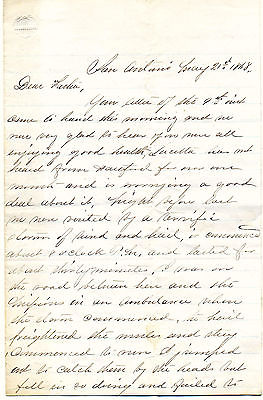 San Antonio May 21st 1868.
Dear
Your letter of the 9th inst
came to hand this morning and we
were very glad to hear you were all
enjoying good health, Luella has not
heard from Hartford for over one
month and is worrying a good
deal about it, night before last
we were visited by a terrific
storm of wind and hail, it commenced
about 8 o'clock P.M, and lasted for
about thirty minutes, I was on
the road between here and the
Mission in an ambulance when
the storm commenced, the hail
freightened the mules and they
commenced to run I jumped
out to catch them by the heads but
fell in so doing and failed to